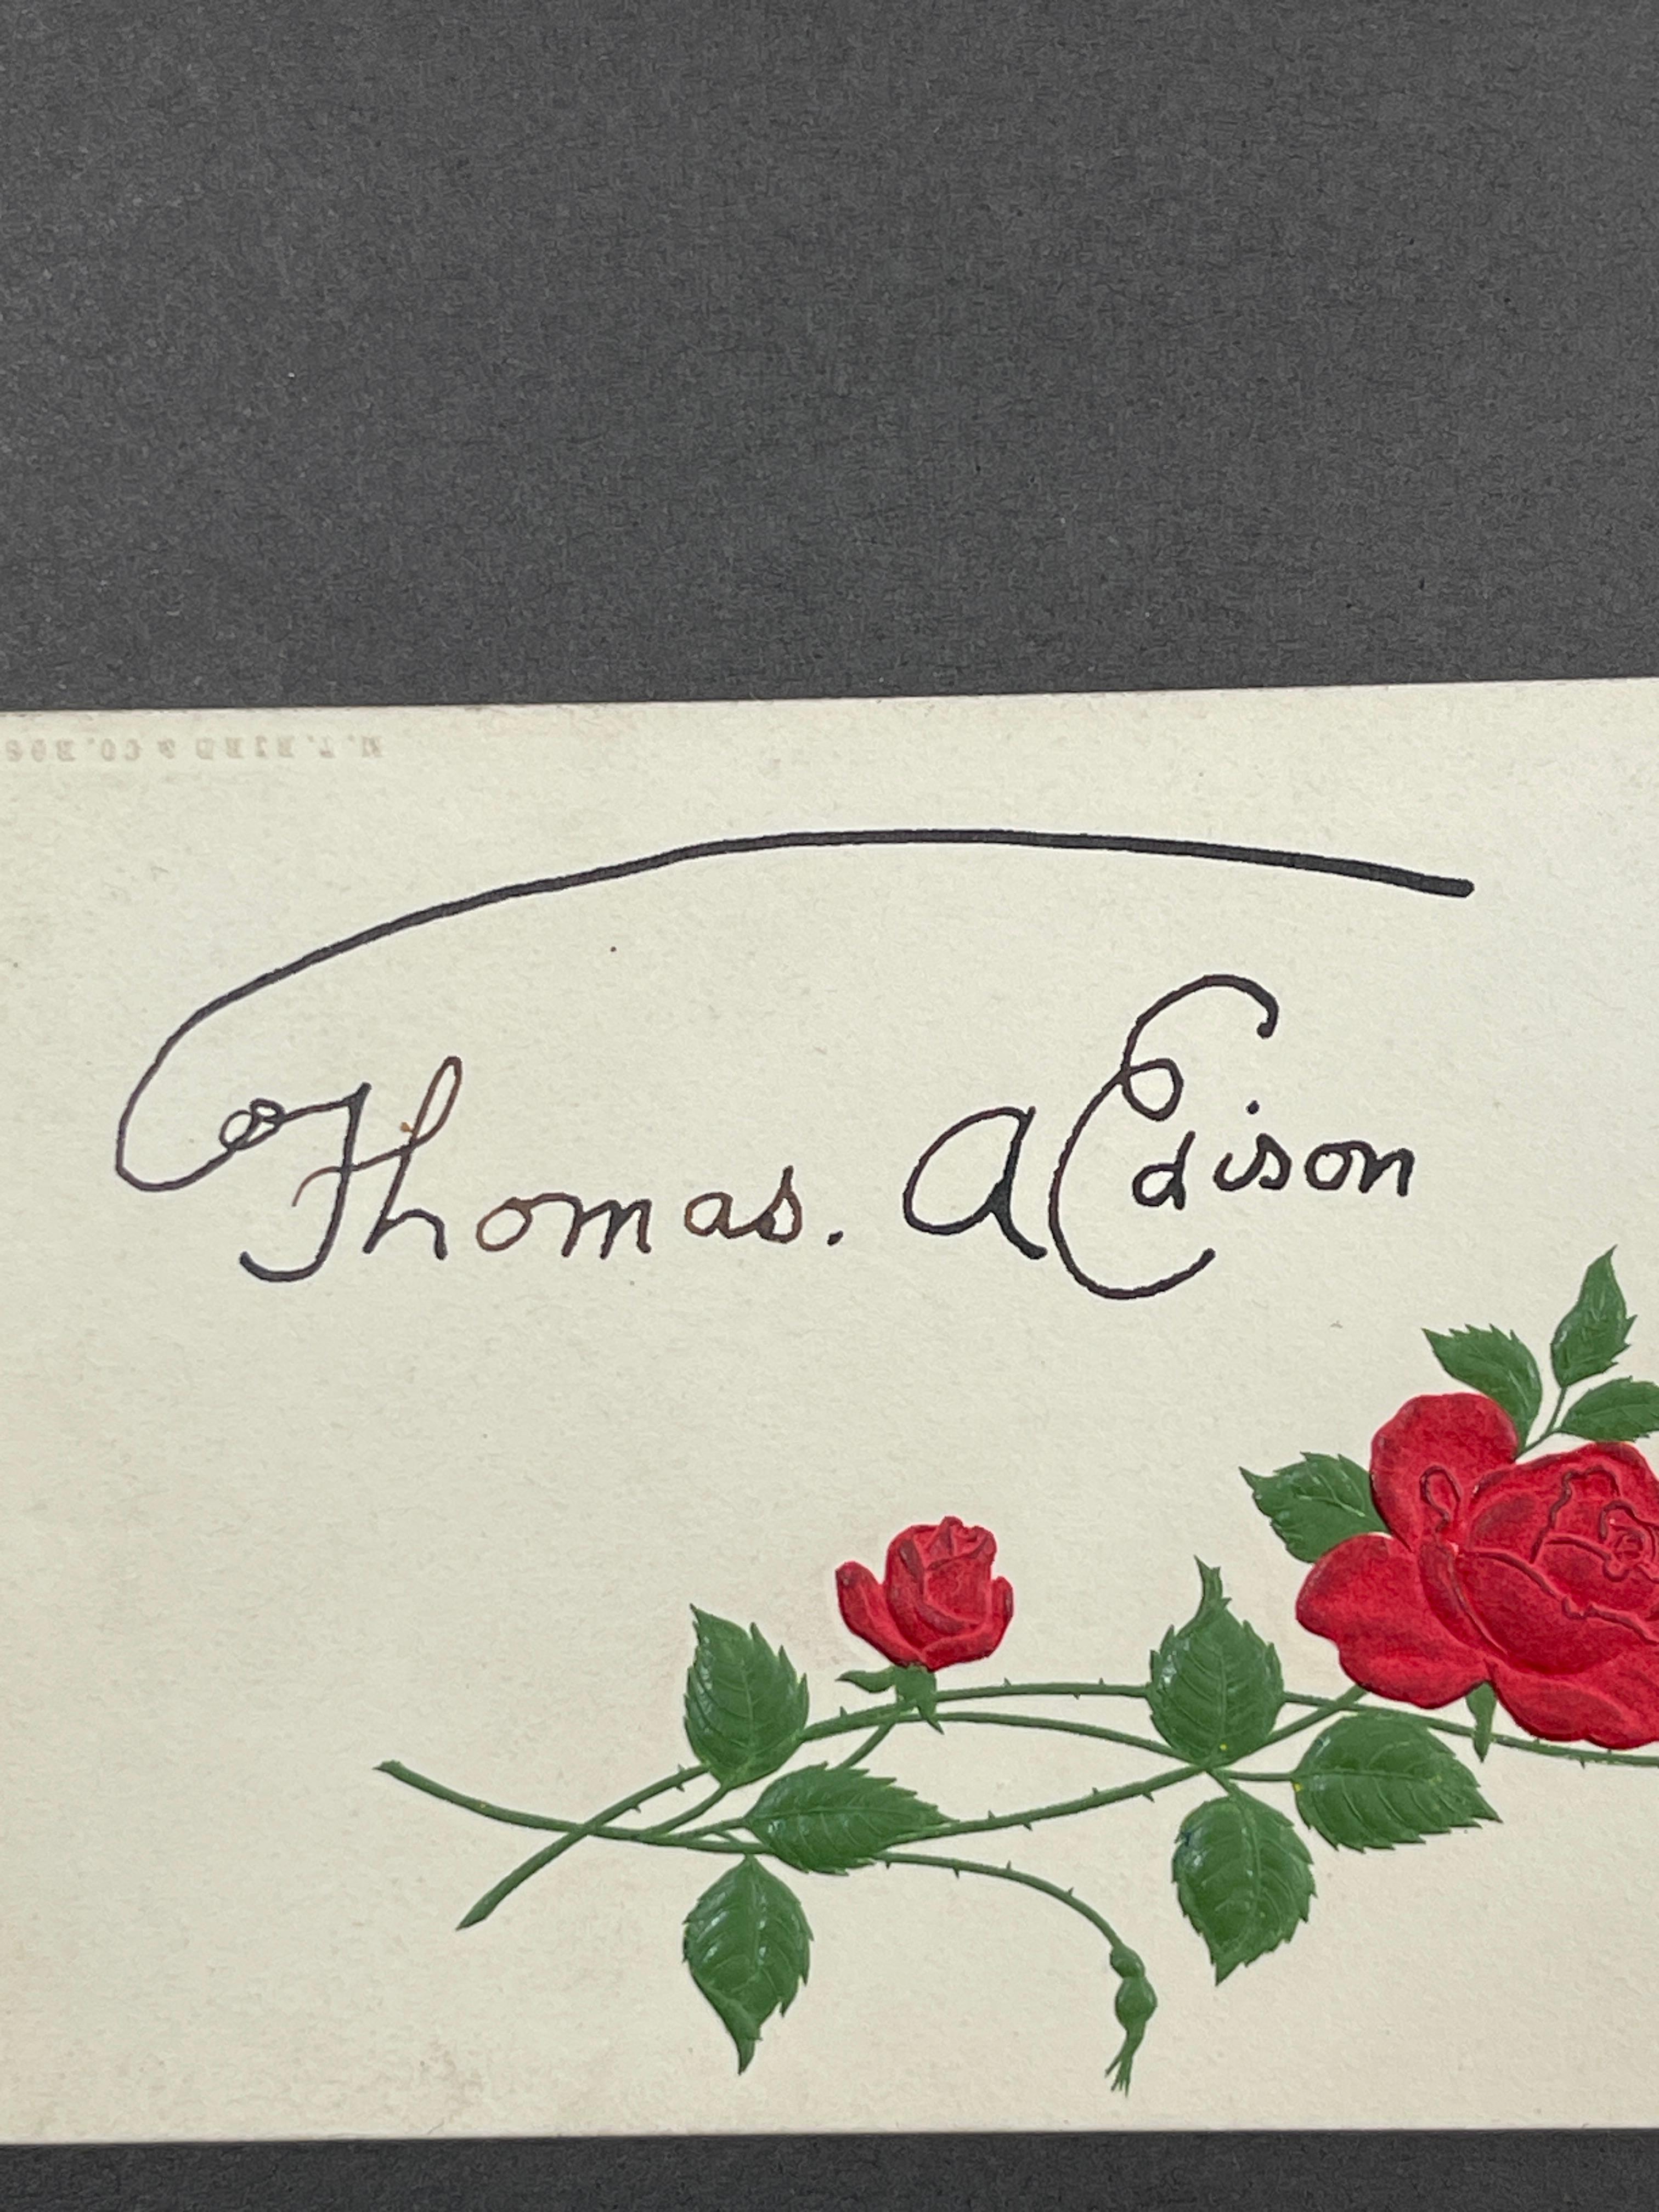 N. T. BIRD & CO. BOS
Thomas. A Edison